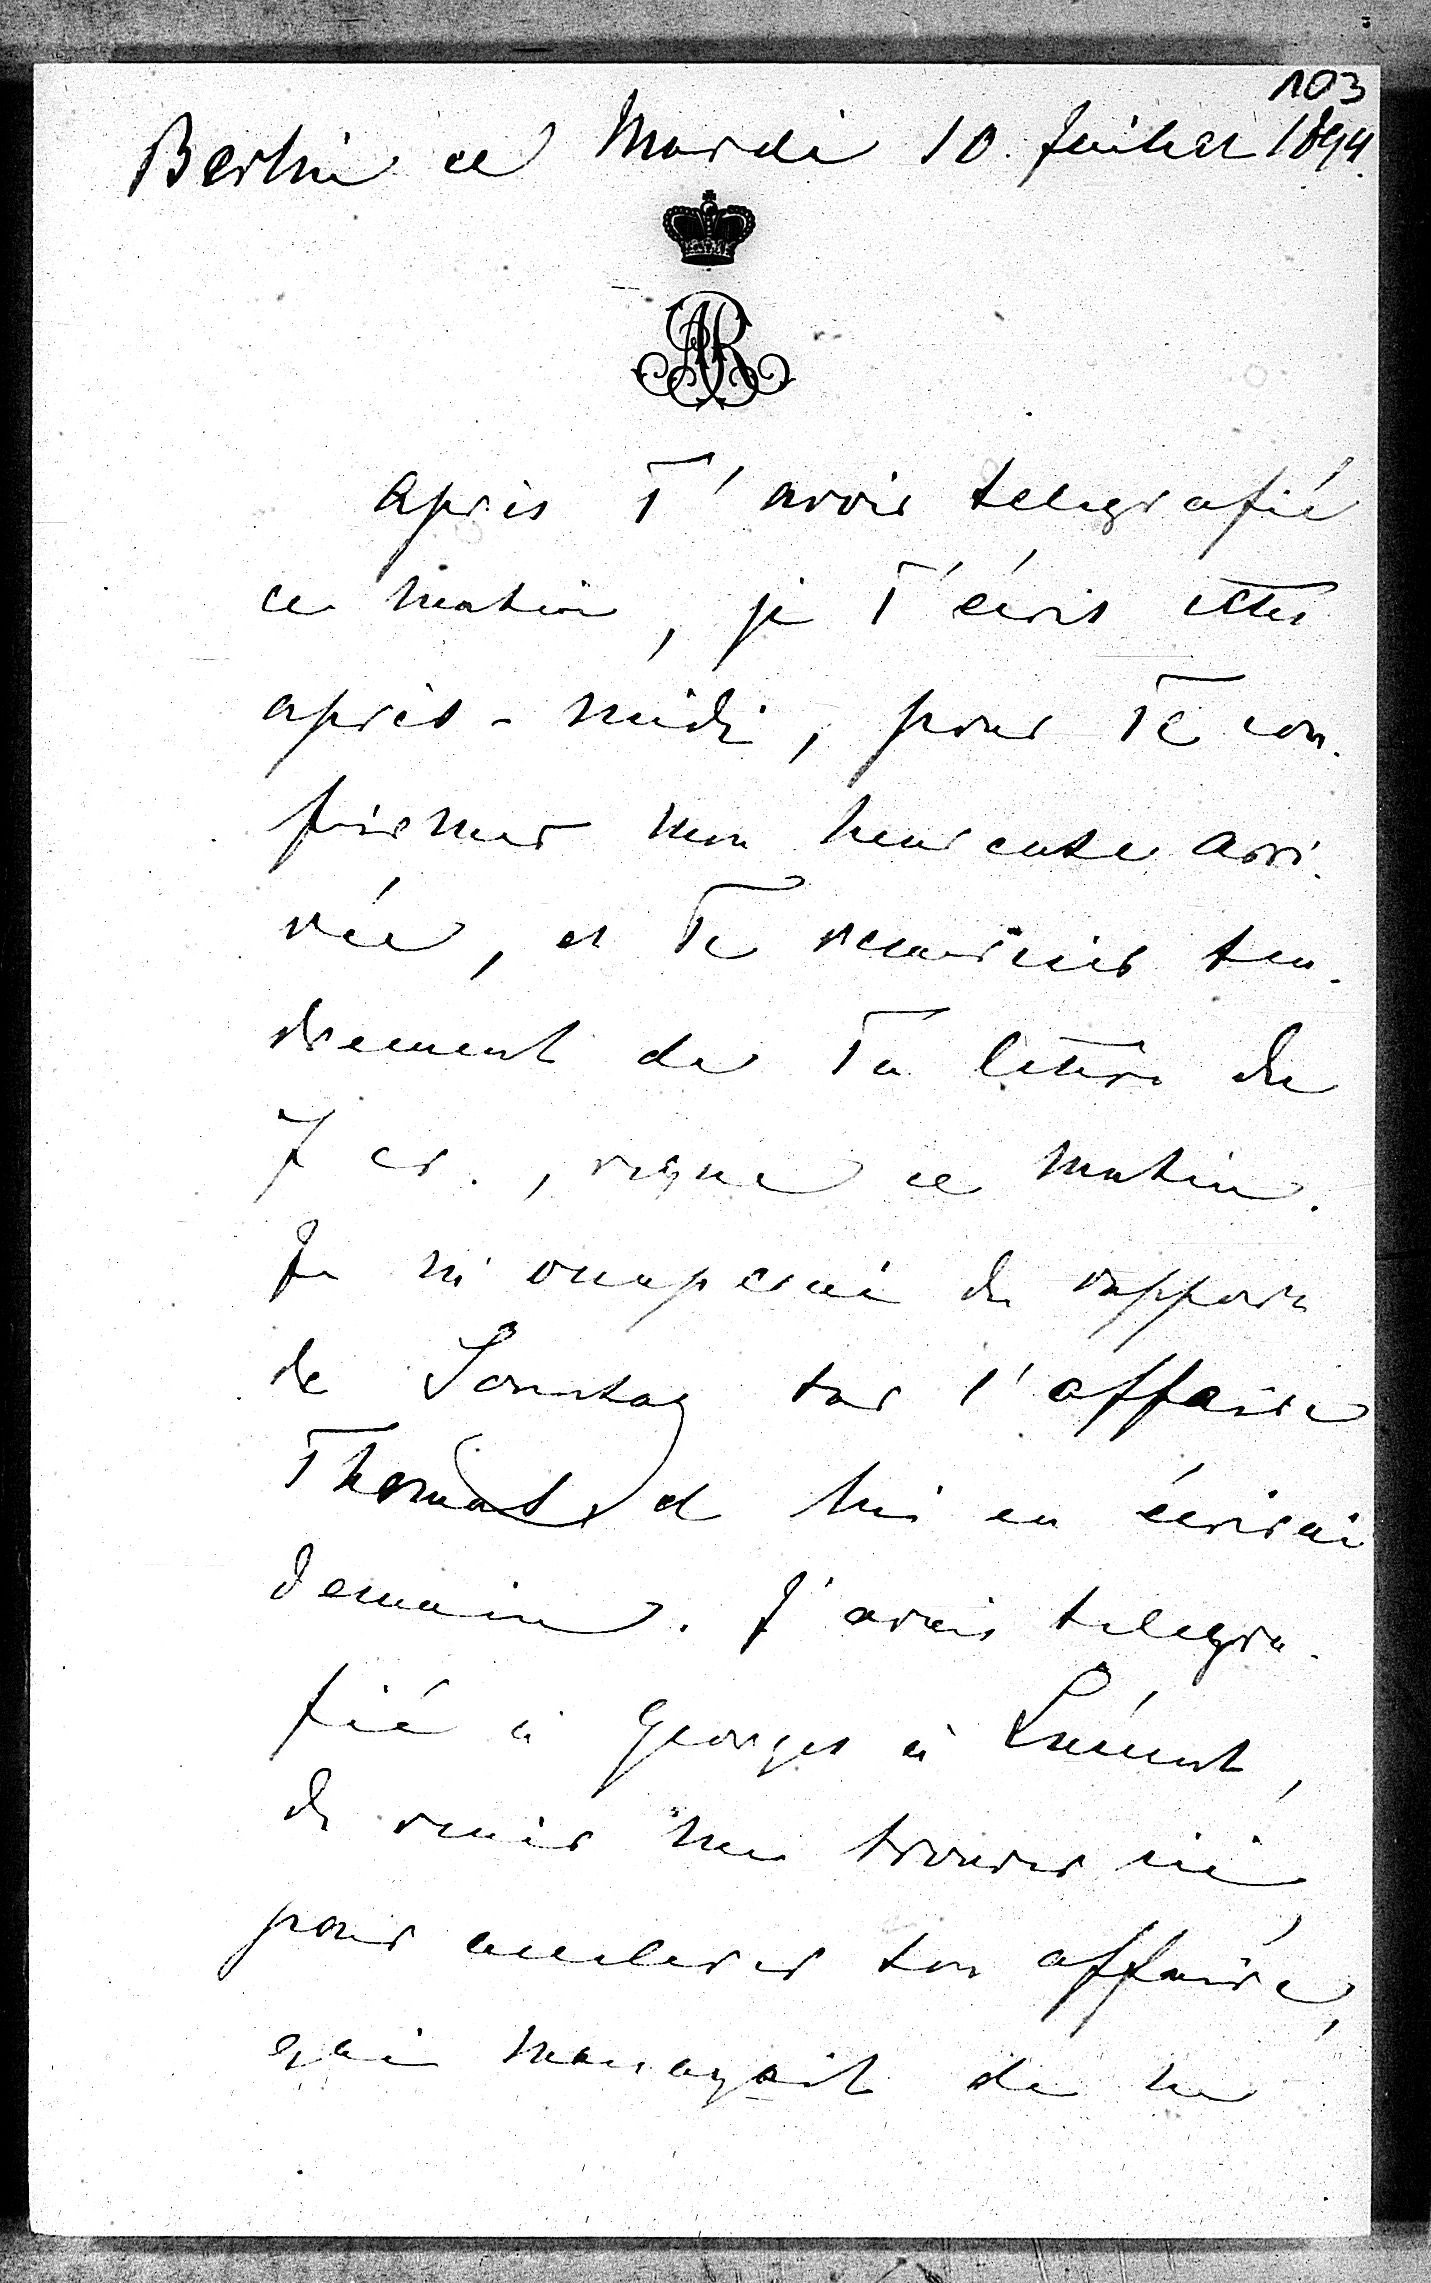 103
Berlin ce Mardi 10. Juillet 1894.
AR
après T'avoir telegrafié
ce matin, je T'écris cette
après-midi, pour Te con-
firmer mon heureuse arri-
vée, et Te remercier ten-
drement de Ta lettre du
7 cr., reçue ce matin.
Je m'occuperai du rapport
de Sonntag sur l'affaire
Thomas, et lui en écrirai
demain. J'avais telegra-
fié à Georges à
de venir me trouver ici,
pour accelerer son affaire,
qui menaçait de ne